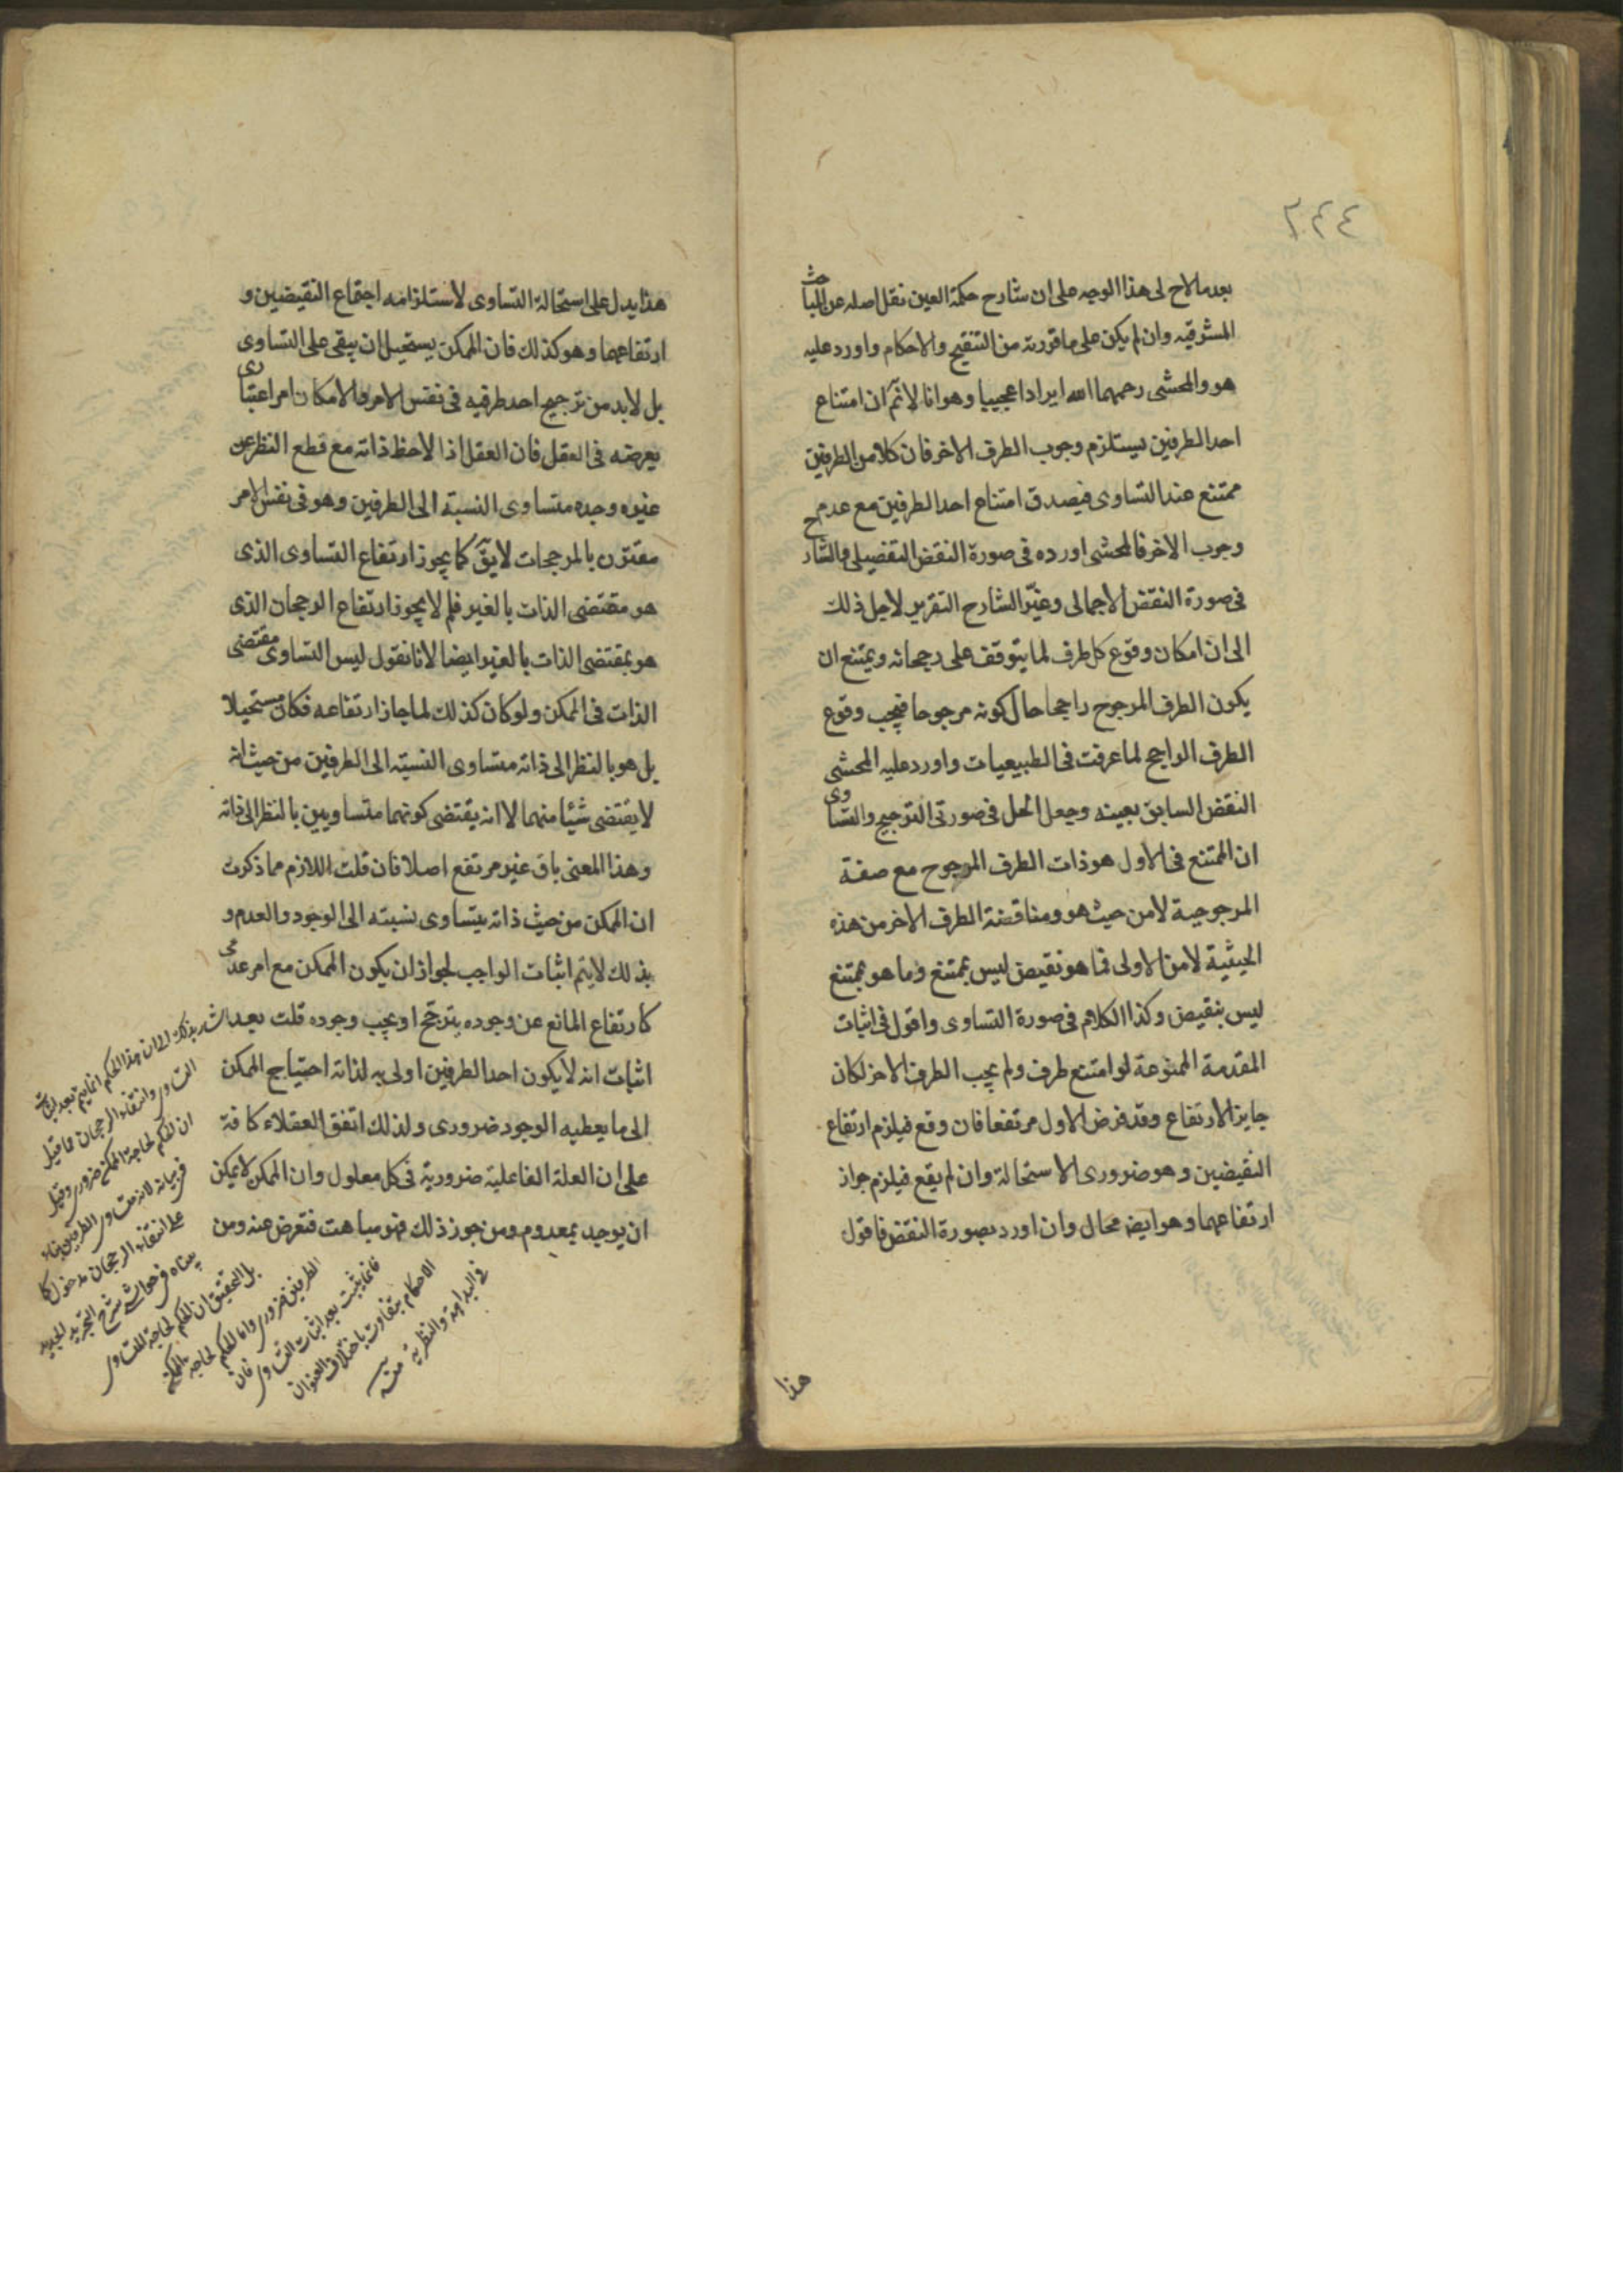 ٢٤٤
بعد ما لاح لى هذا الوجه على ان شارح حكمة العين نقل اصله عن المباحث
المشرقيه وان لم يكن على ما قررته من التنقيح والاحكام واورد عليه
هو والمحشى رحمهما الله ايرادا عجيبا وهو انا لا نم ان امتناع
احد الطرفين يستلزم وجوب الطرف الاخر فان كلا من الطرفين
ممتنع عند التساوى فيصدق امتناع احد الطرفين مع عدم
وجوب الاخر فالمحشى اورده فى صورة النقض التفصيلى والشارح
فى صورة النقض الاجمالى وغيّر الشارح التقرير لاجل ذلك
الى ان امكان وقوع كل طرف لما يتوقف على رجحانه ويمتنع ان
يكون الطرف المرجوح راجحا حال كونه مرجوحا فيجب وقوع
الطرف الراجح لما عرفت فى الطبيعيات واورد عليه المحشى
النقض السابق بعينه وجعل الحل فى صورتى الترجيح والتساوى
ان الممتنع فى الاول هو ذات الطرف المرجوح مع صفة
المرجوحية لا من حيث هو ومناقضة الطرف الاخر من هذه
الحيثية لا من الاولى فما هو نقيض ليس بممتنع وما هو بممتنع
ليس بنقيض وكذا الكلام فى صورة التساوى واقول فى اثبات
المقدمة الممنوعة لو امتنع طرف ولم يجب الطرف الاخر لكان
جايز الارتفاع وقد فرض الاول مرتفعا فان وقع فيلزم ارتفاع
النقيضين وهو ضرورى الاستحالة وان لم يقع فيلزم جواز
ارتفاعهما وهو ايضا محال وان اورد بصورة النقض فاقول
هذا
هذا يدل على استحالة التساوى لاستلزامه اجتماع النقيضين و
ارتفاعهما وهو كذلك فان الممكن يستحيل ان يبقى على التساوى
بل لا بد من ترجيح احد طرفيه فى نفس الامر والامكان امر اعتبارى
يعرضه فى العقل فان العقل اذا لاحظ ذاته مع قطع النظر عن
غيره وجده متساوى النسبة الى الطرفين وهو فى نفس الامر
مقترن بالمرجحات لا يقٓ كما يجوز ارتفاع التساوى الذى
هو مقتضى الذات بالغير فلم لا يجوز ارتفاع الرجحان الذى
هو بمقتضى الذات بالغير ايضا لانا نقول ليس التساوى مقتضى
الذات فى الممكن ولو كان كذلك لما جاز ارتفاعه فكان مستحيلا
بل هو بالنظر الى ذاته متساوى النسبة الى الطرفين من حيث انه
لا يقتضى شيئا منهما لا انه يقتضى كونهما متساويين بالنظر الى ذاته
وهذا المعنى باق غير مرتفع اصلا فان قلت اللازم مما ذكرت
ان الممكن من حيث ذاته يتساوى نسبته الى الوجود والعدم و
بذلك لا يتم اثبات الواجب لجواز ان يكون الممكن مع امر عدمى
كارتفاع المانع عن وجوده يترجح او يجب وجوده قلت بعد
اثبات انه لا يكون احد الطرفين اولى به لذاته احتياج الممكن
الى ما يعطيه الوجود ضرورى ولذلك اتفق العقلاء كافة
على ان العلة الفاعلية ضرورية فى كل معلول وان الممكن لا يمكن
ان يوجد بمعدوم ومن جوز ذلك فهو مباهت فتعرض عنه ومن
اشار بذلك الى ان هذا الحكم انما يتم بعد اثبات
التساوى وانتفاء الرجحان فما قيل
ان الحكم لحاجة الممكن ضرورى وقيل
فى بيانه لانه متساوى الطرفين بناء
على انتفاء الرجحان مدخول كما
بيناه فى حواشى شرح التجريد الجديد
بل التحقيق ان الحكم لحاجة المتساوى
الطرفين ضرورى واما الحكم لحاجة الممكن
فانما يثبت بعد اثبات التساوى فان
الاحكام يتفاوت باختلاف العنوان
فى البداهة والنظرية منه